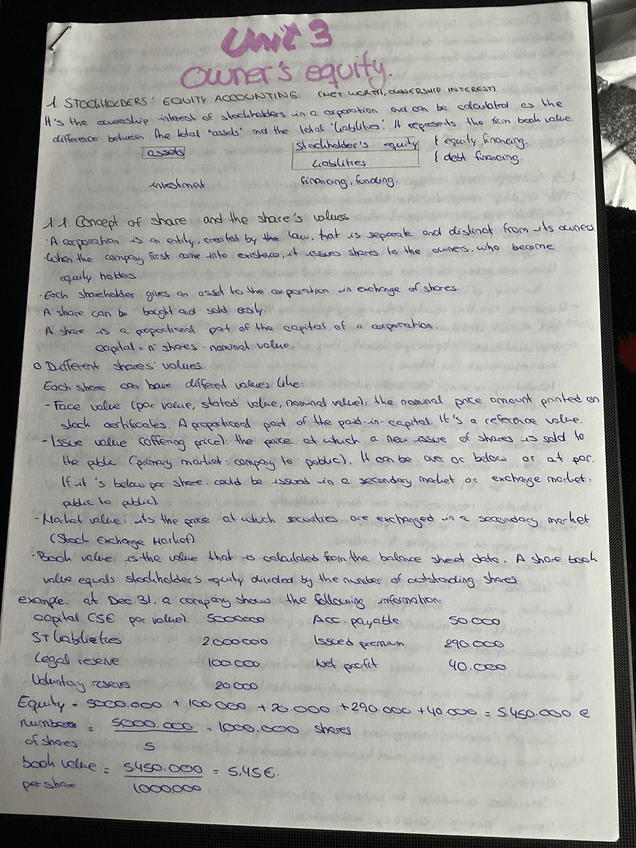 Unit 3
Owner's equity.
1 STOCKHOLDERS' EQUITY ACCOUNTING (NET WORTH, OWNERSHIP INTEREST)
It's the ownership interest of stockholders in a corporation and can be calculated as the
difference between the total "assets" and the total "liabilities". It represents the firm book value
assets Stockholder's equity equity financing.
liabilities debt financing.
investment financing, funding.
1.1. Concept of share and the share's values
· A corporation is an entity, created by the law, that is separate and distinct from its owners
· When the company first come into existence, it issues shares to the owners, who become
equity holders
· Each shareholder gives an asset to the corporation in exchange of shares
A share can be bought and sold easily.
· A share is a proportional part of the capital of a corporation.
capital = nº shares · nominal value.
o Different shares' values
Each share can have different values like:
- Face value (par value, stated value, nominal value): the nominal price amount printed on
stock certificates. A proportional part of the paid-in-capital. It's a reference value.
- Issue value (offering price) the price at which a new issue of shares is sold to
the public (primary market: company to public). It can be over or below or at par.
If it's below per share, could be issued in a secondary market or exchange market,
public to public)
- Market value: its the price at which securities are exchanged in a secondary market
(Stock Exchange Market)
- Book value is the value that is calculated from the balance sheet data. A share book
value equals stockholder's equity divided by the number of outstanding shares
example. at Dec 31, a company shows the following information:
capital (5€ par value). 5000000 Acc. payable 50.000
ST liabilities 2000000 Issued premium 290.000
Legal reserve 100.000 Net profit 40.000
Voluntary reserve 20000
Equity = 5000.000 + 100.000 + 20.000 + 290.000 + 40.000 = 5.450.000 €
number of shares = 5000.000 / 5 = 1000.000 shares
book value per share = 5450.000 / 1000000 = 5,45€.